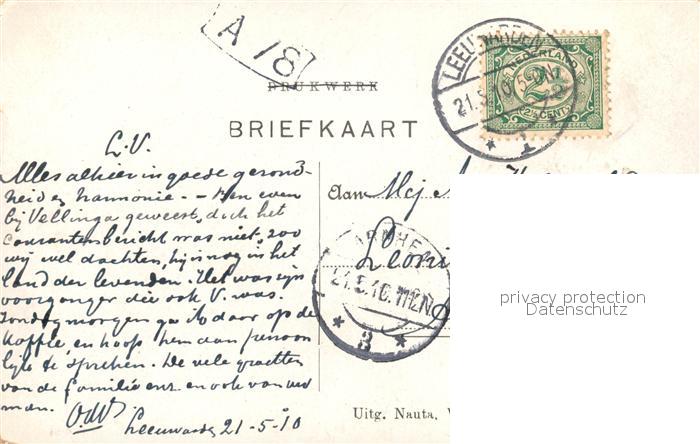 A 78
DRUKWERK
LEEUWARDEN
21.5.10
1
NEDERLAND
2½
2½ CENT
BRIEFKAART
L.V.
Alles alhier in goede gezond-
heid en harmonie. - Ben even
bij Vellinga geweest, doch het
courantenbericht was niet, zoo
wij wel dachten, hij is nog in het
land der levenden. Het was zijn
voorganger die ook V. was.
Zondagmorgen ga ik daar op de
koffie en hoop hem dan persoon
lijk te spreken. De vele groeten
van de familie enz. en ook van uw
man.
Leeuwarden 21-5-10
Aan Mej
ARNHE
21.5.10.
3
Uitg. Nauta,
privacy protection
Datenschutz